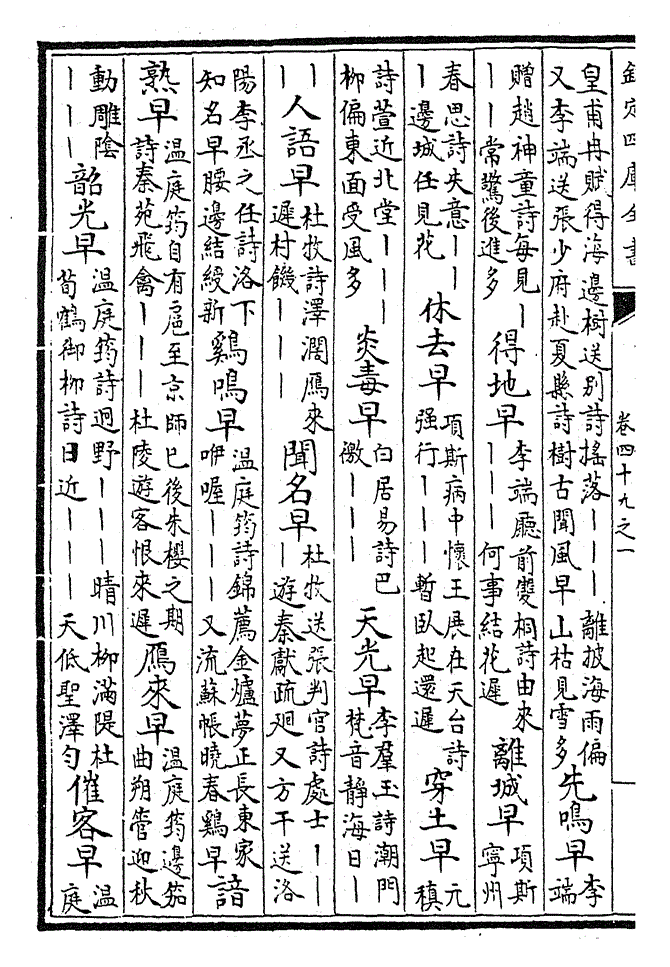 欽定四庫全書 卷四十九之一
皇甫冉賦得海邊樹送別詩搖落丨丨丨離披海雨偏又李端送張少府赴夏縣詩樹古聞風早山枯見雪多先鳴早李端
贈趙神童詩每見丨丨丨常驚後進多得地早李端廳前雙桐詩由來丨丨丨何事結花遲離城早項斯寧州
春思詩失意丨丨丨邊城任見花休去早項斯病中懷王展在天台詩强行丨丨丨暫臥起還遲穿土早元稹
詩萱近北堂丨丨丨柳偏東面受風多炎毒早白居易詩巴徼丨丨丨天光早李羣玉詩潮門梵音靜海日丨
丨丨人語早杜牧詩澤濶鴈來遲村饑丨丨丨聞名早杜牧送張判官詩處士丨丨丨遊秦獻疏廻又方干送洛
陽李丞之任詩洛下知名早腰邊結綬新鷄鳴早温庭筠詩錦薦金爐夢正長東家咿喔丨丨丨又流蘇帳曉春鷄早諳
熟早温庭筠自有扈至京師已後朱櫻之期詩秦苑飛禽丨丨丨杜陵遊客恨來遲鴈來早温庭筠邊笳曲朔管迎秋
動雕陰丨丨丨韶光早温庭筠詩迥野丨丨丨晴川柳滿隄杜荀鶴御柳詩日近丨丨丨天低聖澤勻催客早温庭